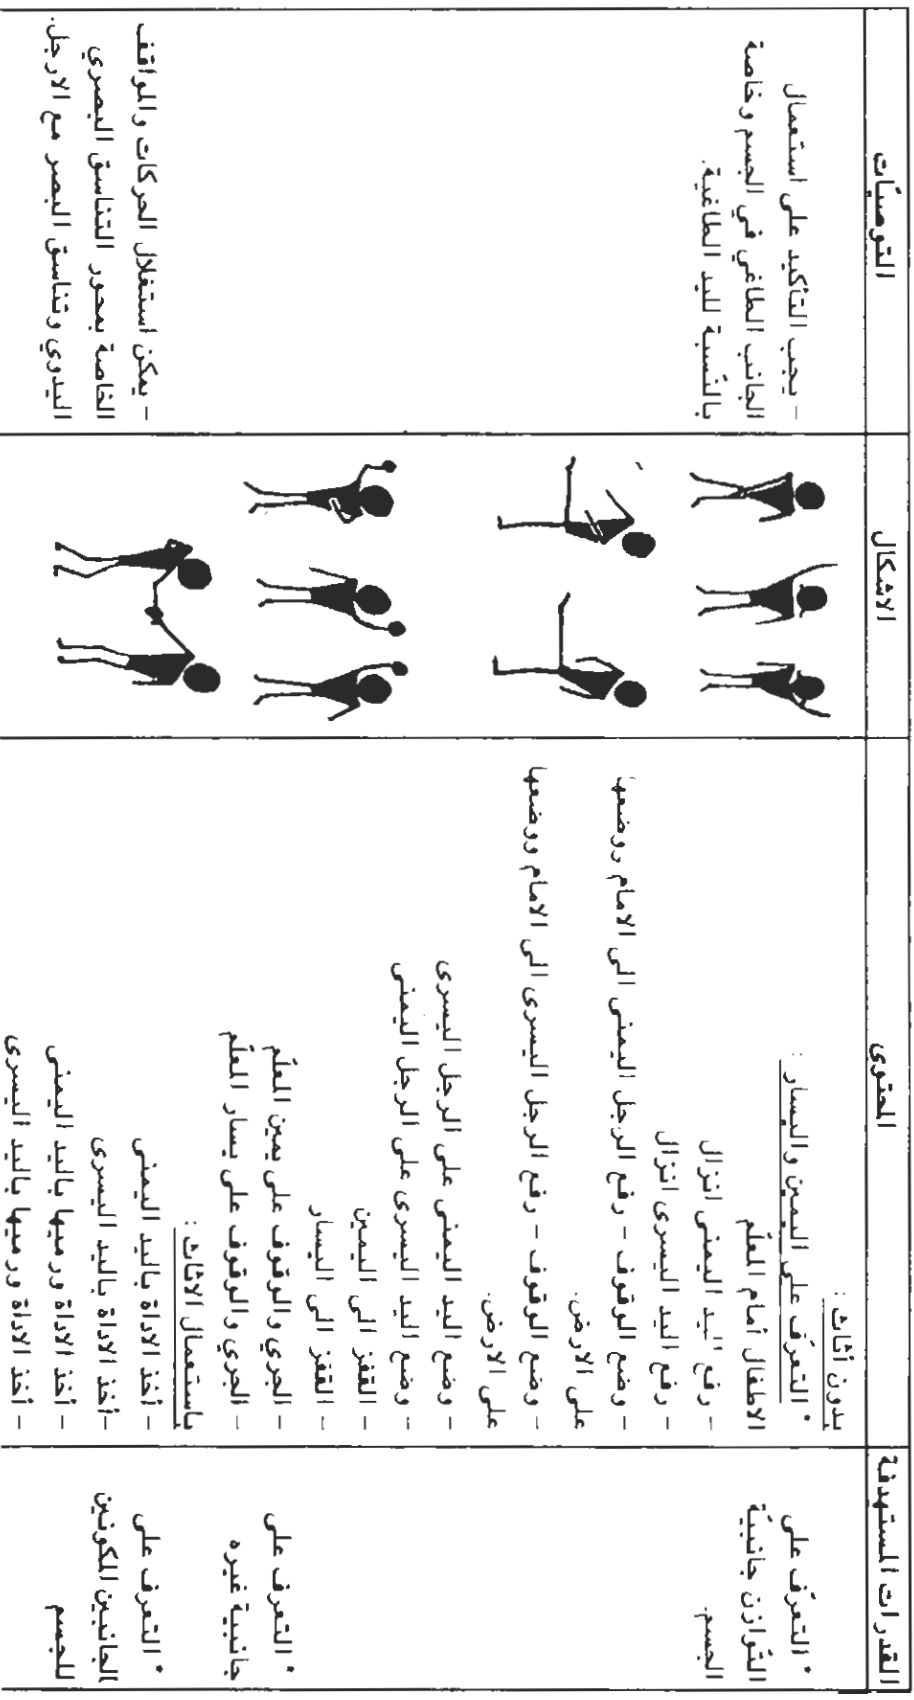 القدرات المستهدفة
* التعرّف على
التّوازن جانبيّة
الجسم.
* التعرف على
جانبية غيره
* التعرف على
الجانبين المكونين
للجسم
المحتوى
بدون أثاث :
* التعرّف على اليمين واليسار :
الاطفال أمام المعلّم
- رفع اليد اليمنى انزال
- رفع اليد اليسرى انزال
- وضع الوقوف - رفع الرجل اليمنى الى الامام ووضعها
على الارض.
- وضع الوقوف - رفع الرجل اليسرى الى الامام ووضعها
على الارض.
- وضع اليد اليمنى على الرجل اليسرى
- وضع اليد اليسرى على الرجل اليمنى
- القفز الى اليمين
- القفز الى اليسار
- الجري والوقوف على يمين المعلّم
- الجري والوقوف على يسار المعلّم
باستعمال الاثاث :
- أخذ الاداة باليد اليمنى
- أخذ الاداة باليد اليسرى
- أخذ الاداة ورميها باليد اليمنى
- أخذ الاداة ورميها باليد اليسرى
الاشكال
التوصيّات
- يجب التأكيد على استعمال
الجانب الطاغي في الجسم وخاصة
بالنّسبة لليد الطاغية.
- يمكن استغلال الحركات والمواقف
الخاصة بمحور التناسق البصري
اليدوي وتناسق البصر مع الارجل.